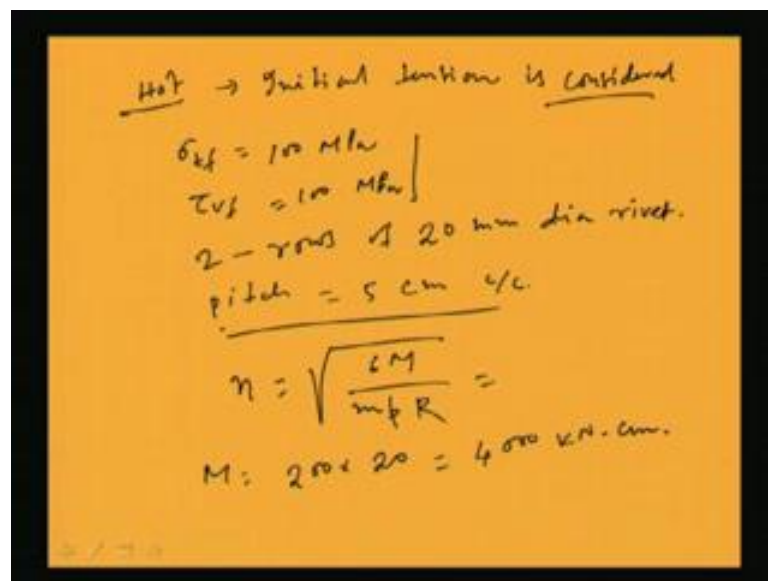 Hot → Initial tension is considered
σtf = 100 MPa
τvf = 100 MPa
2 - rows of 20 mm dia rivet.
pitch = 5 cm c/c.
n = √(6M / mpR) =
M = 200 x 20 = 4000 kN.cm.